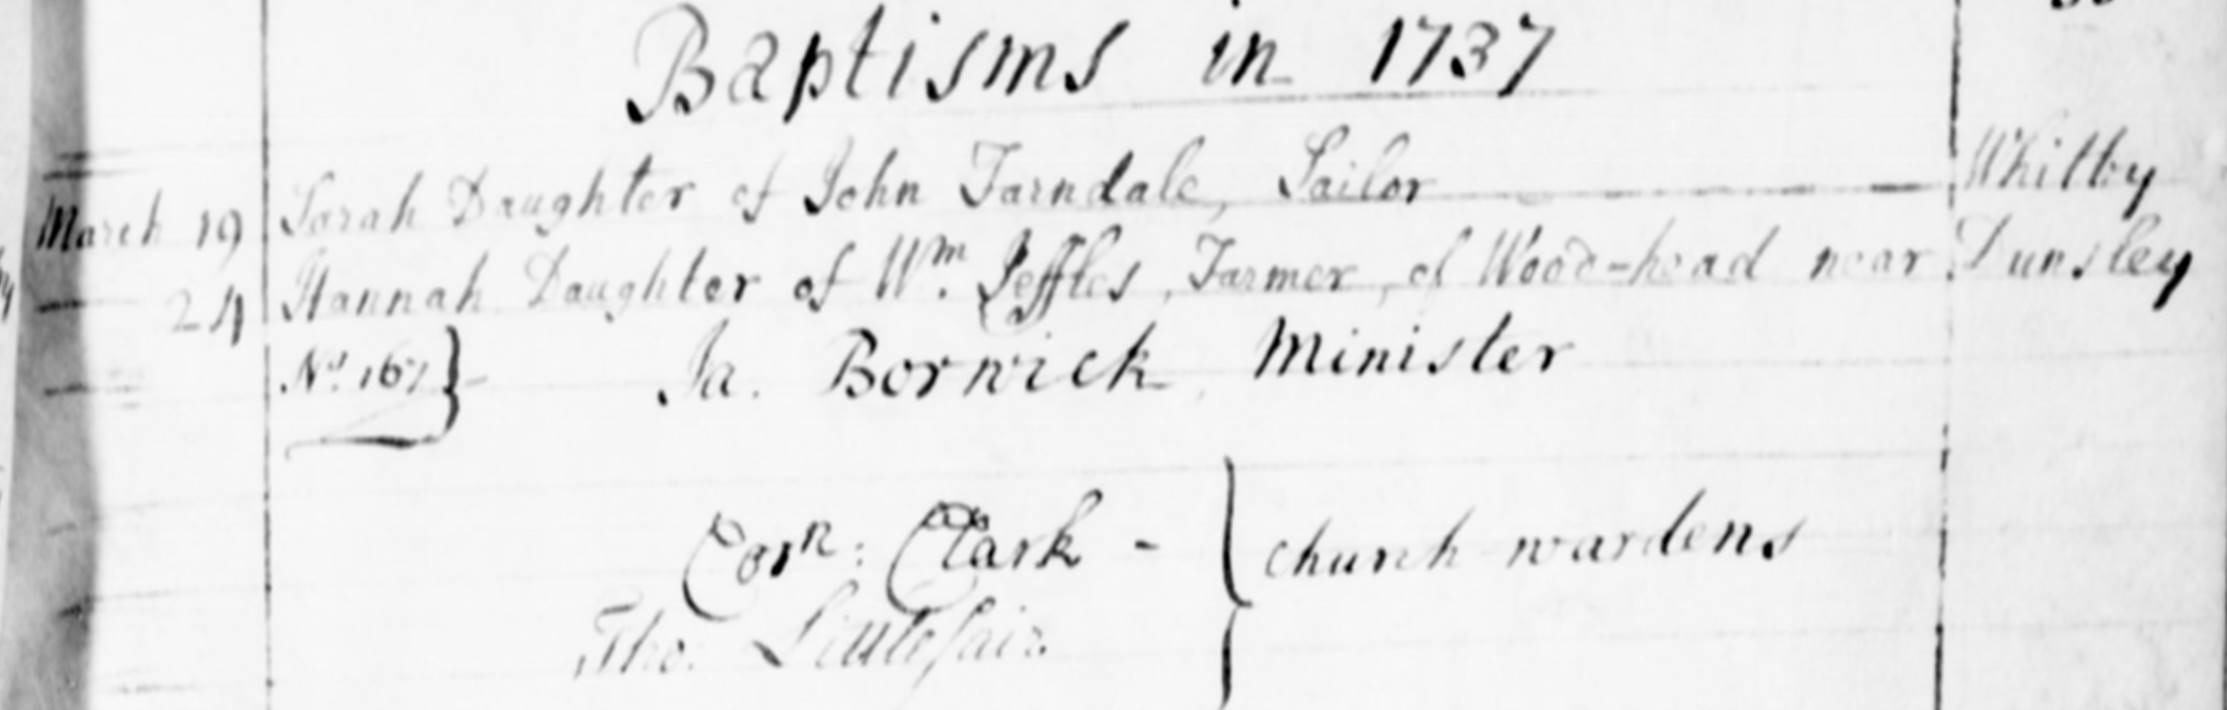 Baptisms in 1737
March 19 Sarah Daughter of John Farndale, Sailor Whitby
24 Hannah Daughter of Wm. Jeffles, Farmer, of Wood-head near Dunsley
No. 167 } Ja. Borwick, Minister
Corn: Clark - } Church wardens
Tho: Littlefair.